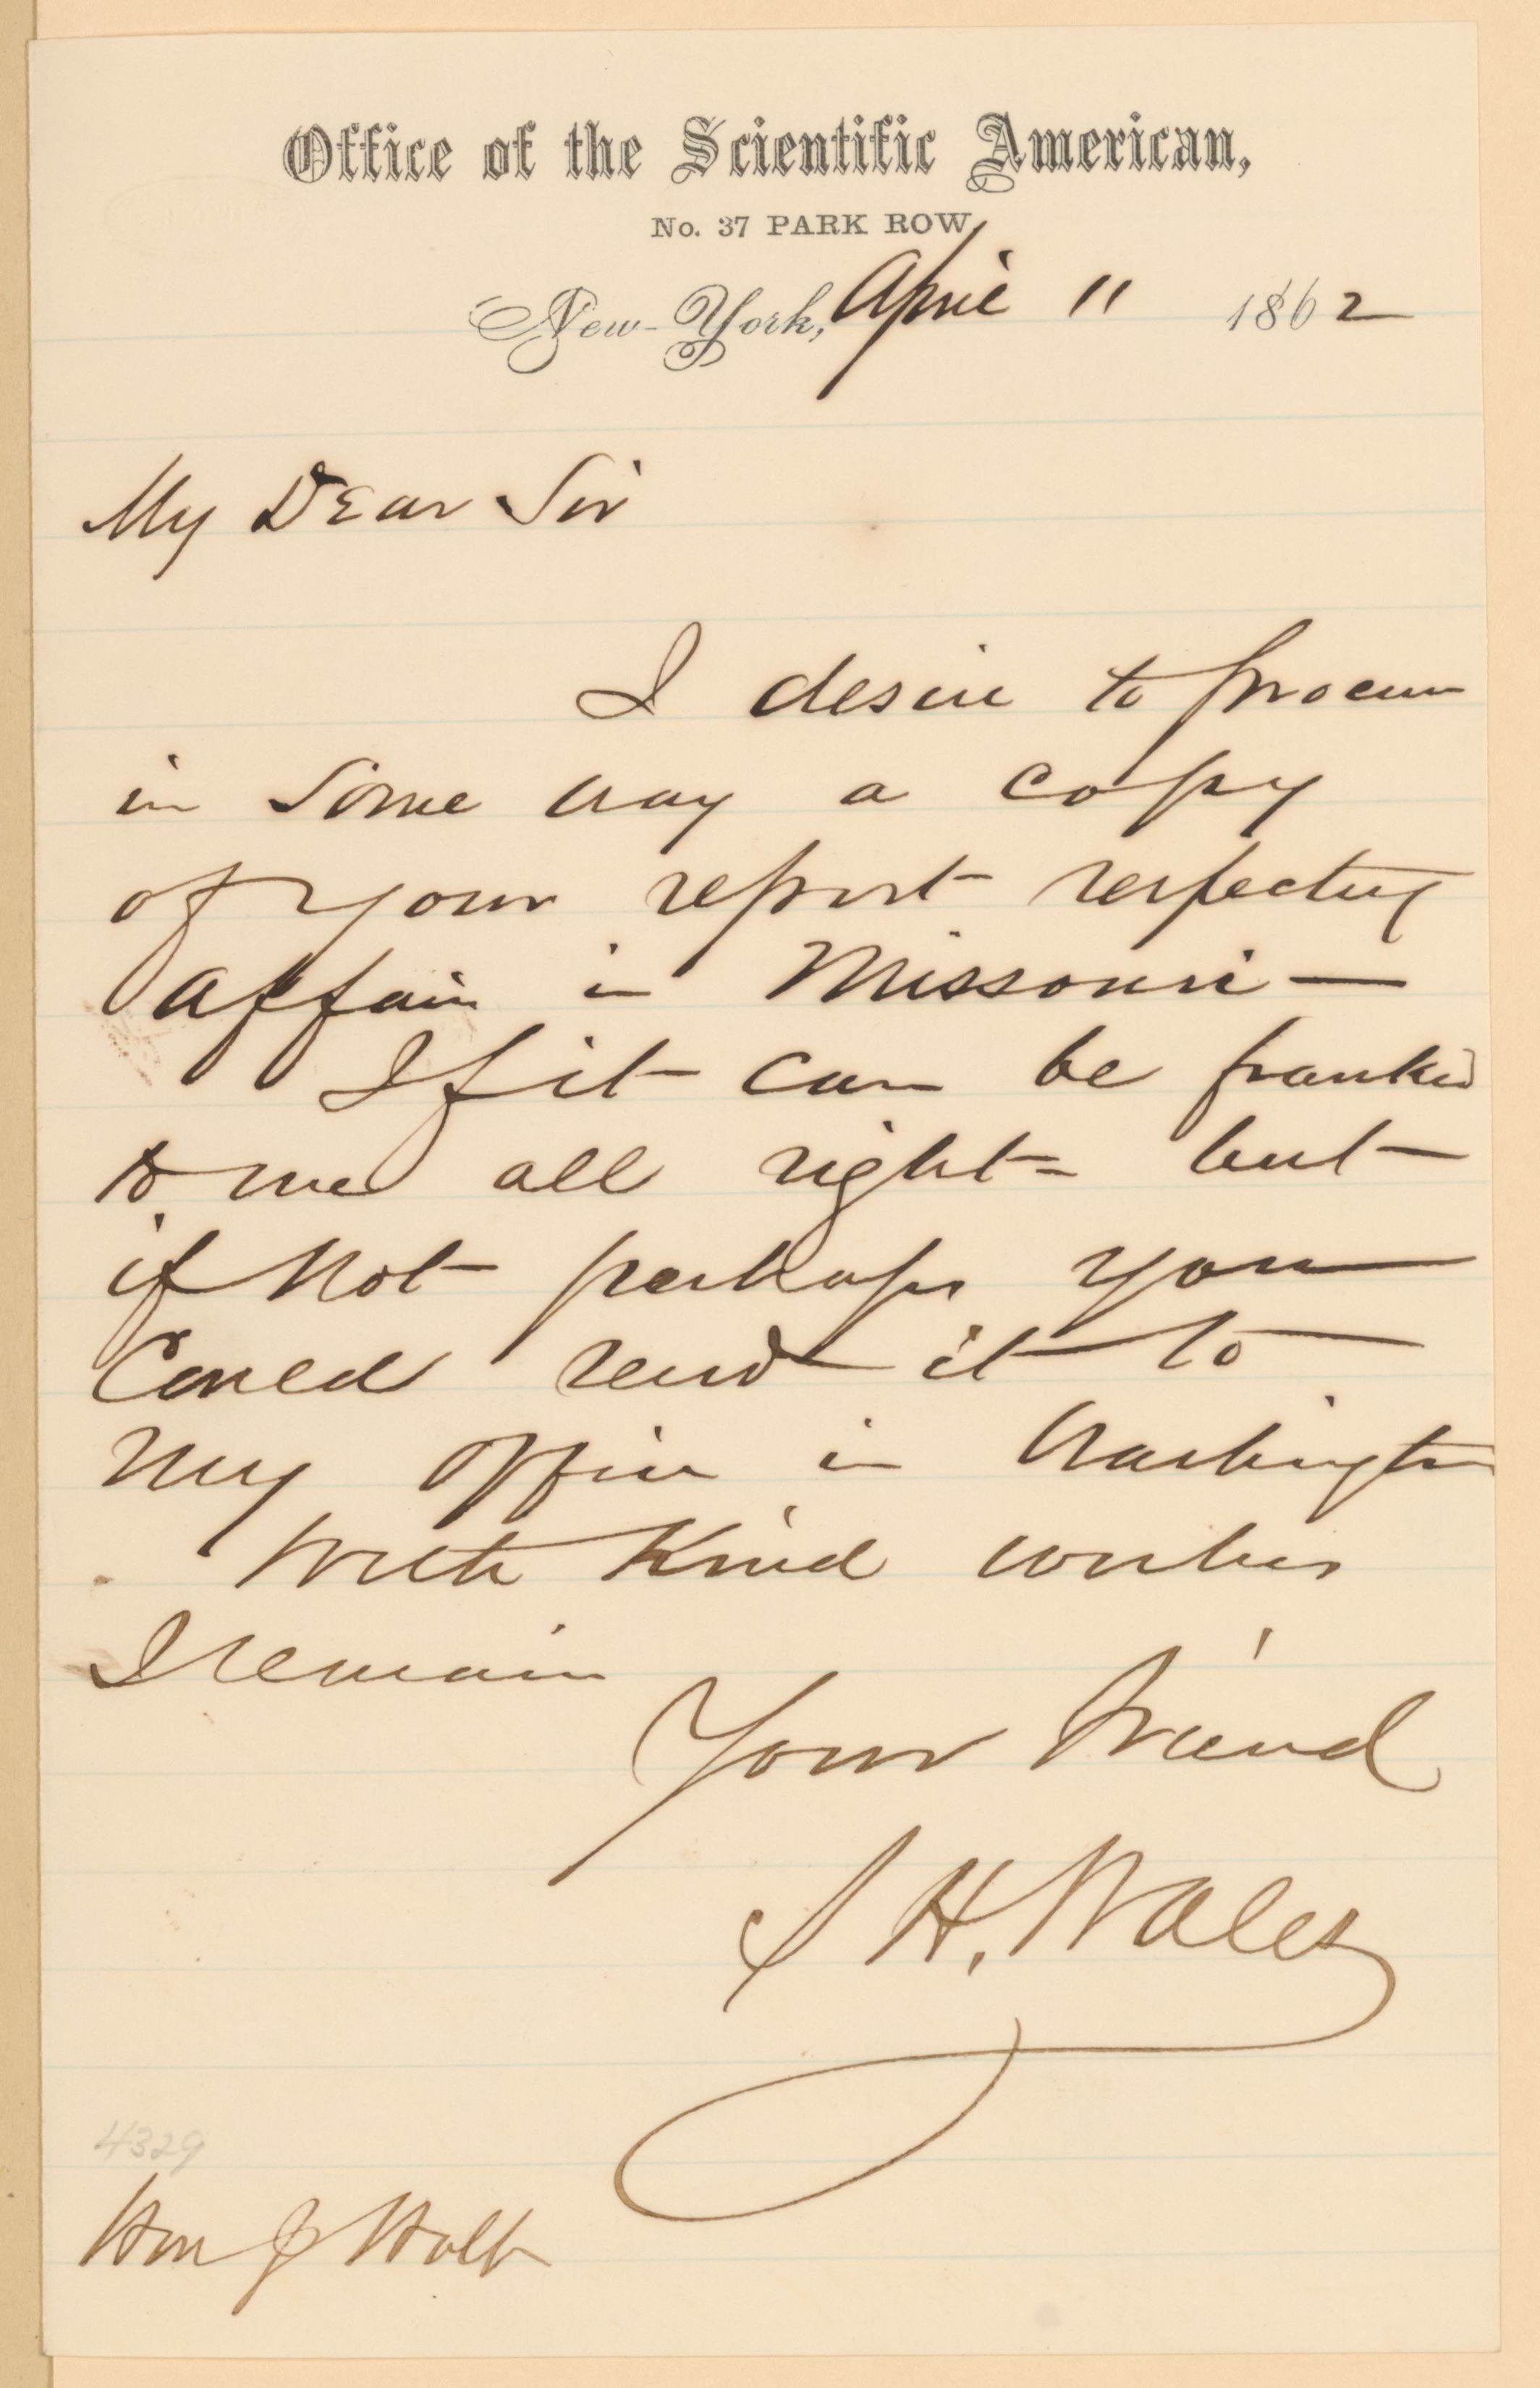 Office of the Scientific American,
No. 37 PARK ROW,
New-York, April 11 1862
My Dear Sir
I desire to procure
in some way a copy
of your report respecting
affairs in Missouri —
If it can be franked
to me all right = but
if not perhaps you
could send it to
my office in Washington
With Kind wishes
I remain
Your friend
S H. Wales
4329
Hon J Holt